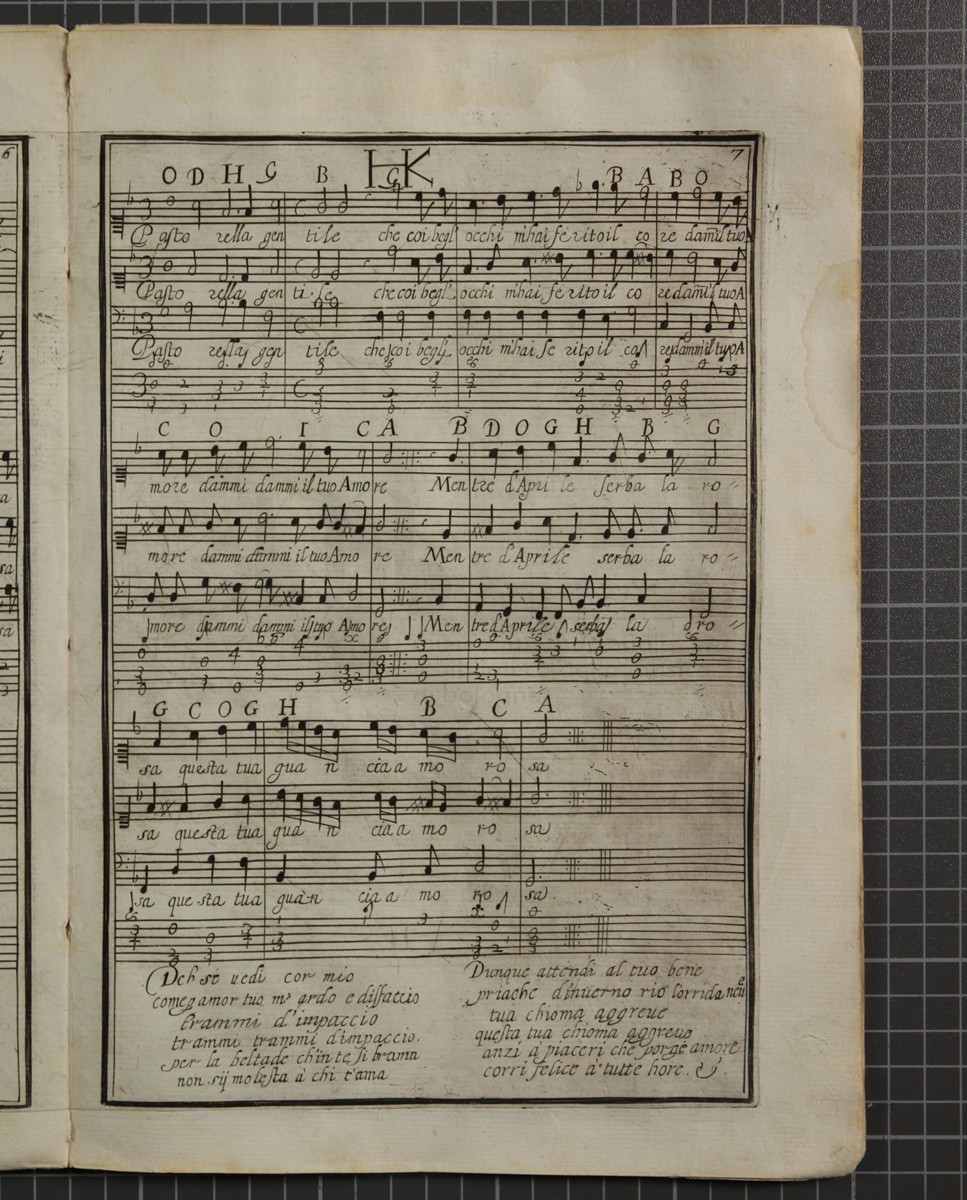 6
7
O D H G B HK G B A B O
Pasto rella gen tile che coi begl' occhi m'hai ferito il co re dam̃i l tuo
Pasto rella gen ti le che coi begl' occhi m'hai fe rito il co re dam̃i l tuo A
Pasto rella gen tile che coi begl' occhi m'hai fe rito il co re dammi il tuo A
C O I C A B D O G H B G
more dammi dammi il tuo Amo re Men tre d'Apri le serba la ro
more dammi dammi il tuo Amo re Men tre d'Aprile serba la ro
more dammi dammi il tuo Amo re Men tre d'Aprile serba la ro
G C O G H B C A
sa questa tua gua n cia a mo ro sa
sa questa tua gua n cia a mo ro sa
sa questa tua guan cia a mo ro sa
Deh se uedi cor mio
come amor tuo m' ardo e disfaccio
trammi d'impaccio
trammi trammi d'impaccio.
per la beltade ch'in te si brama
non sij molesta à chi t'ama
Dunque attendi al tuo bene
priache d'inuerno rio l'orrida neue
tua chioma aggreue
questa tua chioma aggreue
anzi à piaceri che porge amore
corri felice à tutte hore.